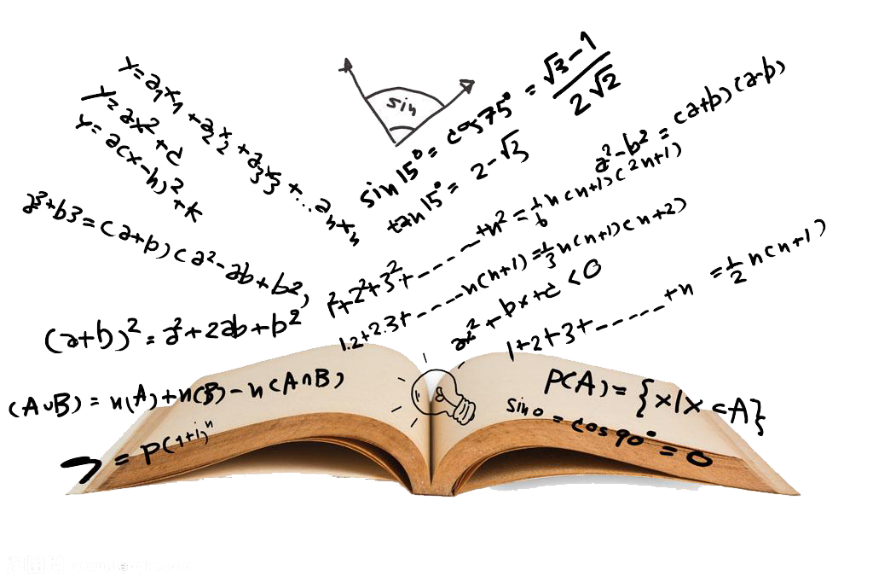 y=a₁x₁+a₂x₂+a₃x₃+...aₙxₙ
y=ax²+c
y=a(x-h)²+k
a³+b3=(a+b)(a²-ab+b²)
(a+b)²=a²+2ab+b²
sin
sin15°=cos75°=√3-1/2√2
tan15°=2-√3
a²-b²=(a+b)(a-b)
1²+2²+3²+------+n²=1/6n(n+1)(2n+1)
1.2+2.3+-----n(n+1)=1/3n(n+1)(n+2)
ax²+bx+c<0
1+2+3+------+n =1/2n(n+1)
(A∪B)=n(A)+n(B)-n(A∩B)
=P(1+i)ⁿ
P(A)={x|x⊂A}
sin0=cos90°=0